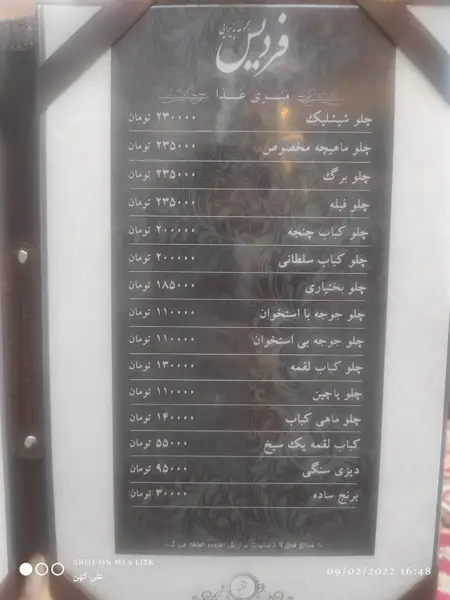 مجموعه پذیرایی
فردیس
منوی غذا
چلو شیشلیک ۲۳۰۰۰۰ تومان
چلو ماهیچه مخصوص ۲۳۵۰۰۰ تومان
چلو برگ ۲۳۵۰۰۰ تومان
چلو فیله ۲۳۵۰۰۰ تومان
چلو کباب چنجه ۲۰۰۰۰۰ تومان
چلو کباب سلطانی ۲۰۰۰۰۰ تومان
چلو بختیاری ۱۸۵۰۰۰ تومان
چلو جوجه با استخوان ۱۱۰۰۰۰ تومان
چلو جوجه بی استخوان ۱۱۰۰۰۰ تومان
چلو کباب لقمه ۱۳۰۰۰۰ تومان
چلو پاچین ۱۱۰۰۰۰ تومان
چلو ماهی کباب ۱۴۰۰۰۰ تومان
کباب لقمه یک سیخ ۵۵۰۰۰ تومان
دیزی سنگی ۹۵۰۰۰ تومان
برنج ساده ۳۰۰۰۰ تومان
به مبالغ فوق ۹٪ مالیات بر ارزش افزوده اضافه می گردد
SHOT ON MI 9 LITE
علی کهن
09/02/2022 16:48